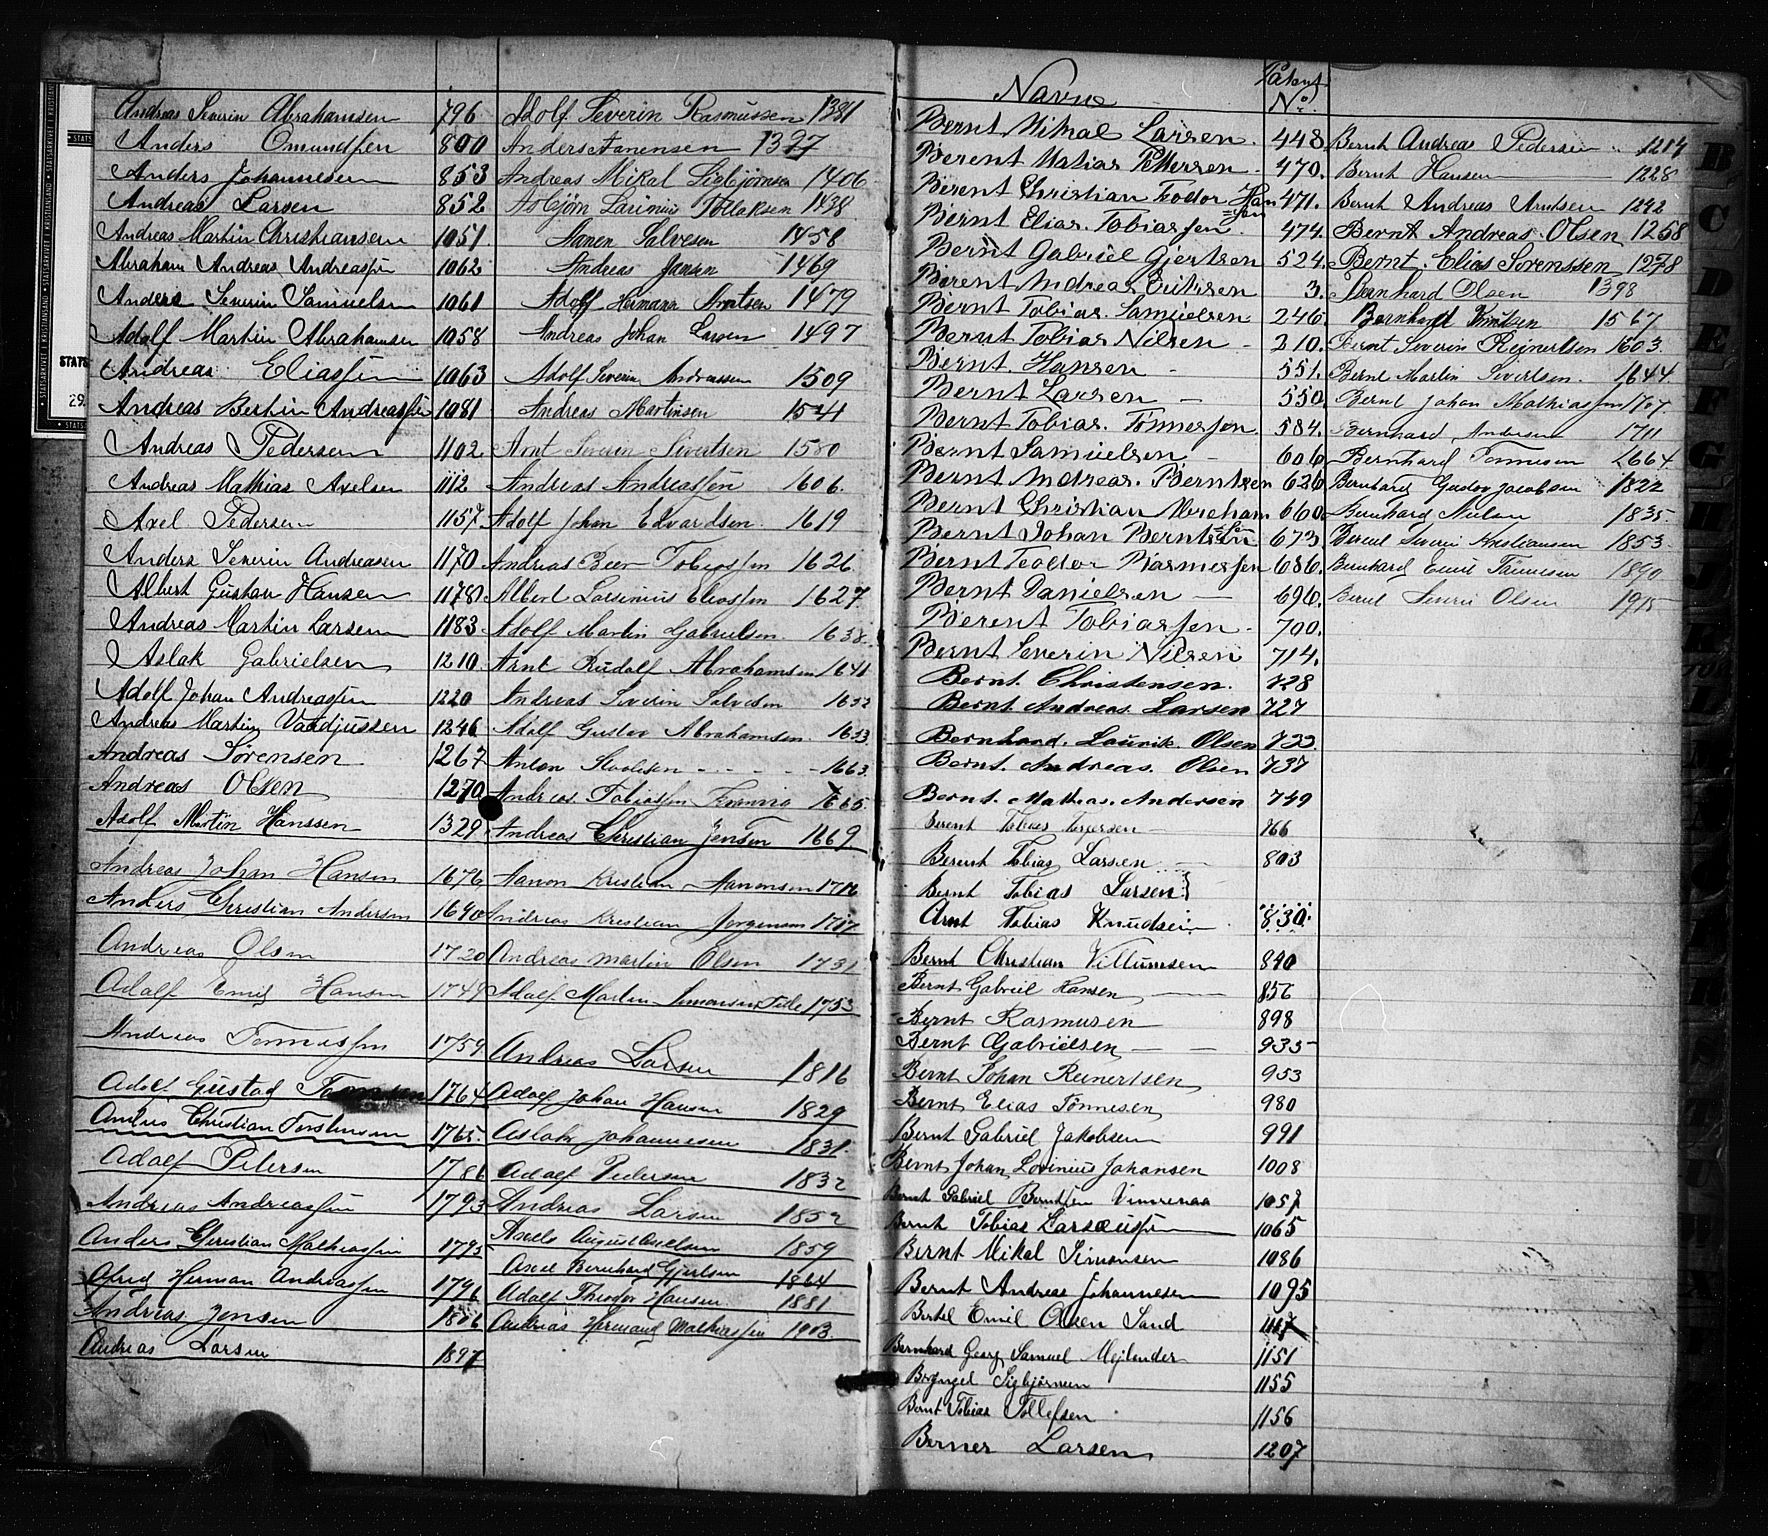 Andreas Severin Abrahamsen 796
Anders Omundsen 800
Anders Johannesen 853
Andreas Larsen 852
Andreas Martin Christiansen 1051
Abraham Andreas Andreassen 1062
Anders Severin Samuelsen 1061
Adolf Martin Abrahamsen 1058
Andreas Eliassen 1063
Andreas Bertin Andreassen 1081
Andreas Pedersen 1102
Andreas Mathias Axelsen 1112
Axel Pedersen 1157
Anders Severin Andreasen 1170
Albert Gustian Hansen 1178
Andreas Martin Larsen 1183
Aslak Gabrielsen 1210
Adolf Johan Andreassen 1220
Andreas Martin 1246
Andreas Sørensen 1267
Andreas Olsen 1270
Adolf Martin Hanssen 1329
Andreas Johan Hansen 1676
Anders Christian Andersen 1690
Andreas Olsen 1720
Adolf Emil Hansen 1749
Andreas Tønnessen 1759
Adolf Gustad 1764
Andreas Christian Torstensen 1765
Adolf Petersen 1786
Andreas Andreassen 1793
Anders Christian Mathiassen 1795
Alfred Herman Andreassen 1796
Andreas Jensen 1806
Andreas Larsen 1897
Adolf Severin Rasmussen 1381
Anders Aanensen 1397
Andreas Mikal Sigbjørnsen 1406
Asbjørn Larinius Tollaksen 1438
Aanen Salvesen 1458
Andreas Jansen 1469
Adolf Hermann Arntsen 1479
Andreas Johan Larsen 1497
Adolf Severin Andreassen 1509
Andreas Martinsen 1541
Arnt Severin Sivertsen 1580
Andreas Andreassen 1606
Adolf Johan Edvardsen 1619
Andreas Beer Tobiassen 1626
Albert Larsenius Eliassen 1627
Adolf Martin Gabrielsen 1638
Arnt Rudolf Abrahamsen 1641
Andreas Severin Salvesen 1652
Adolf Gustav Abrahamsen 1653
Anton 1663
Andreas Tobiassen 1665
Andreas Christian Jensen 1669
Aanon Kristian Aanonsen 1716
Andreas Kristian Jørgensen 1717
Andreas Martin Olsen 1731
Adolf Martin Simonsen 1753
Andreas Larsen 1816
Adolf Johan Hansen 1829
Aslak Johannessen 1831
Adolf Pedersen 1832
Andreas Larsen 1852
Axel August Axelsen 1859
Axel Bernhard Gjertsen 1864
Adolf Theodor Hansen 1881
Andreas Herman Mathiassen 1903
Navne Patent No.
Bernt Mikal Larsen 448
Berent Matias Pettersen 470
Berent Christian Teodor Han=sen 471
Bernt Elias Tobiassen 474
Bernt Gabriel Gjertsen 524
Berent Andreas Eriksen 3
Bernt Tobias Samuelsen 246
Bernt Tobias Nilsen 310
Bernt Hansen 551
Bernt Larsen 550
Bernt Tobias Tønnessen 584
Bernt Samuelsen 606
Bernt Andreas Berntsen 626
Bernt Christian Abraham=sen 660
Bernt Johan Berntsen 673
Bernt Teodor Rasmussen 686
Bernt Danielsen 696
Berent Tobiassen 700
Bernt Severin Nilsen 714
Bernt Christensen 728
Bernt Andreas Larsen 727
Bernhard Laurik Olsen 733
Bernt Andreas Olsen 737
Bernt Mathias Andersen 749
Berent Tobias Torjersen 766
Berent Tobias Larsen 803
Bernt Tobias Larsen
Arnt Tobias Knudsen 830
Bernt Christian Villumsen 840
Bernt Gabriel Hansen 856
Bernt Rasmusen 898
Bernt Gabrielsen 935
Bernt Johan Reinertsen 953
Bernt Elias Tønnesen 980
Bernt Gabriel Jakobsen 991
Bernt Johan Lovinius Johansen 1008
Bernt Gabriel Berntsen 1057
Bernt Tobias 1065
Bernt Mikal Simonsen 1086
Bernt Andreas Johannesen 1095
Bertel Emil Olsen Sand 1117
Bernhard Georg Samuel Mejlender 1151
Sigbjørnsen 1155
Bernt Tobias Tollefsen 1156
Berner Larsen 1207
Bernt Andreas Pedersen 1214
Bernt Hansen 1228
Bernt Andreas Arntsen 1242
Bernt Andreas Olsen 1268
Bernt Elias Sørenssen 1278
Bernhard Olsen 1398
Bernhard Knutsen 1567
Bernt Severin Reinertsen 1603
Bernt Martin Sivertsen 1644
Bernt Johan Mathiassen 1707
Bernhard Andersen 1711
Bernhard Tønnesen 1664
Bernhard Gustav Jacobsen 1822
Bernhard Nielsen 1835
Bernt Severin Kristiansen 1853
Bernhard Emil Tønnesen 1890
Bernt Severin Olsen 1915
B
C
D
E
F
G
H
STATSARKIVET I KRISTIANSAND
STATS
29